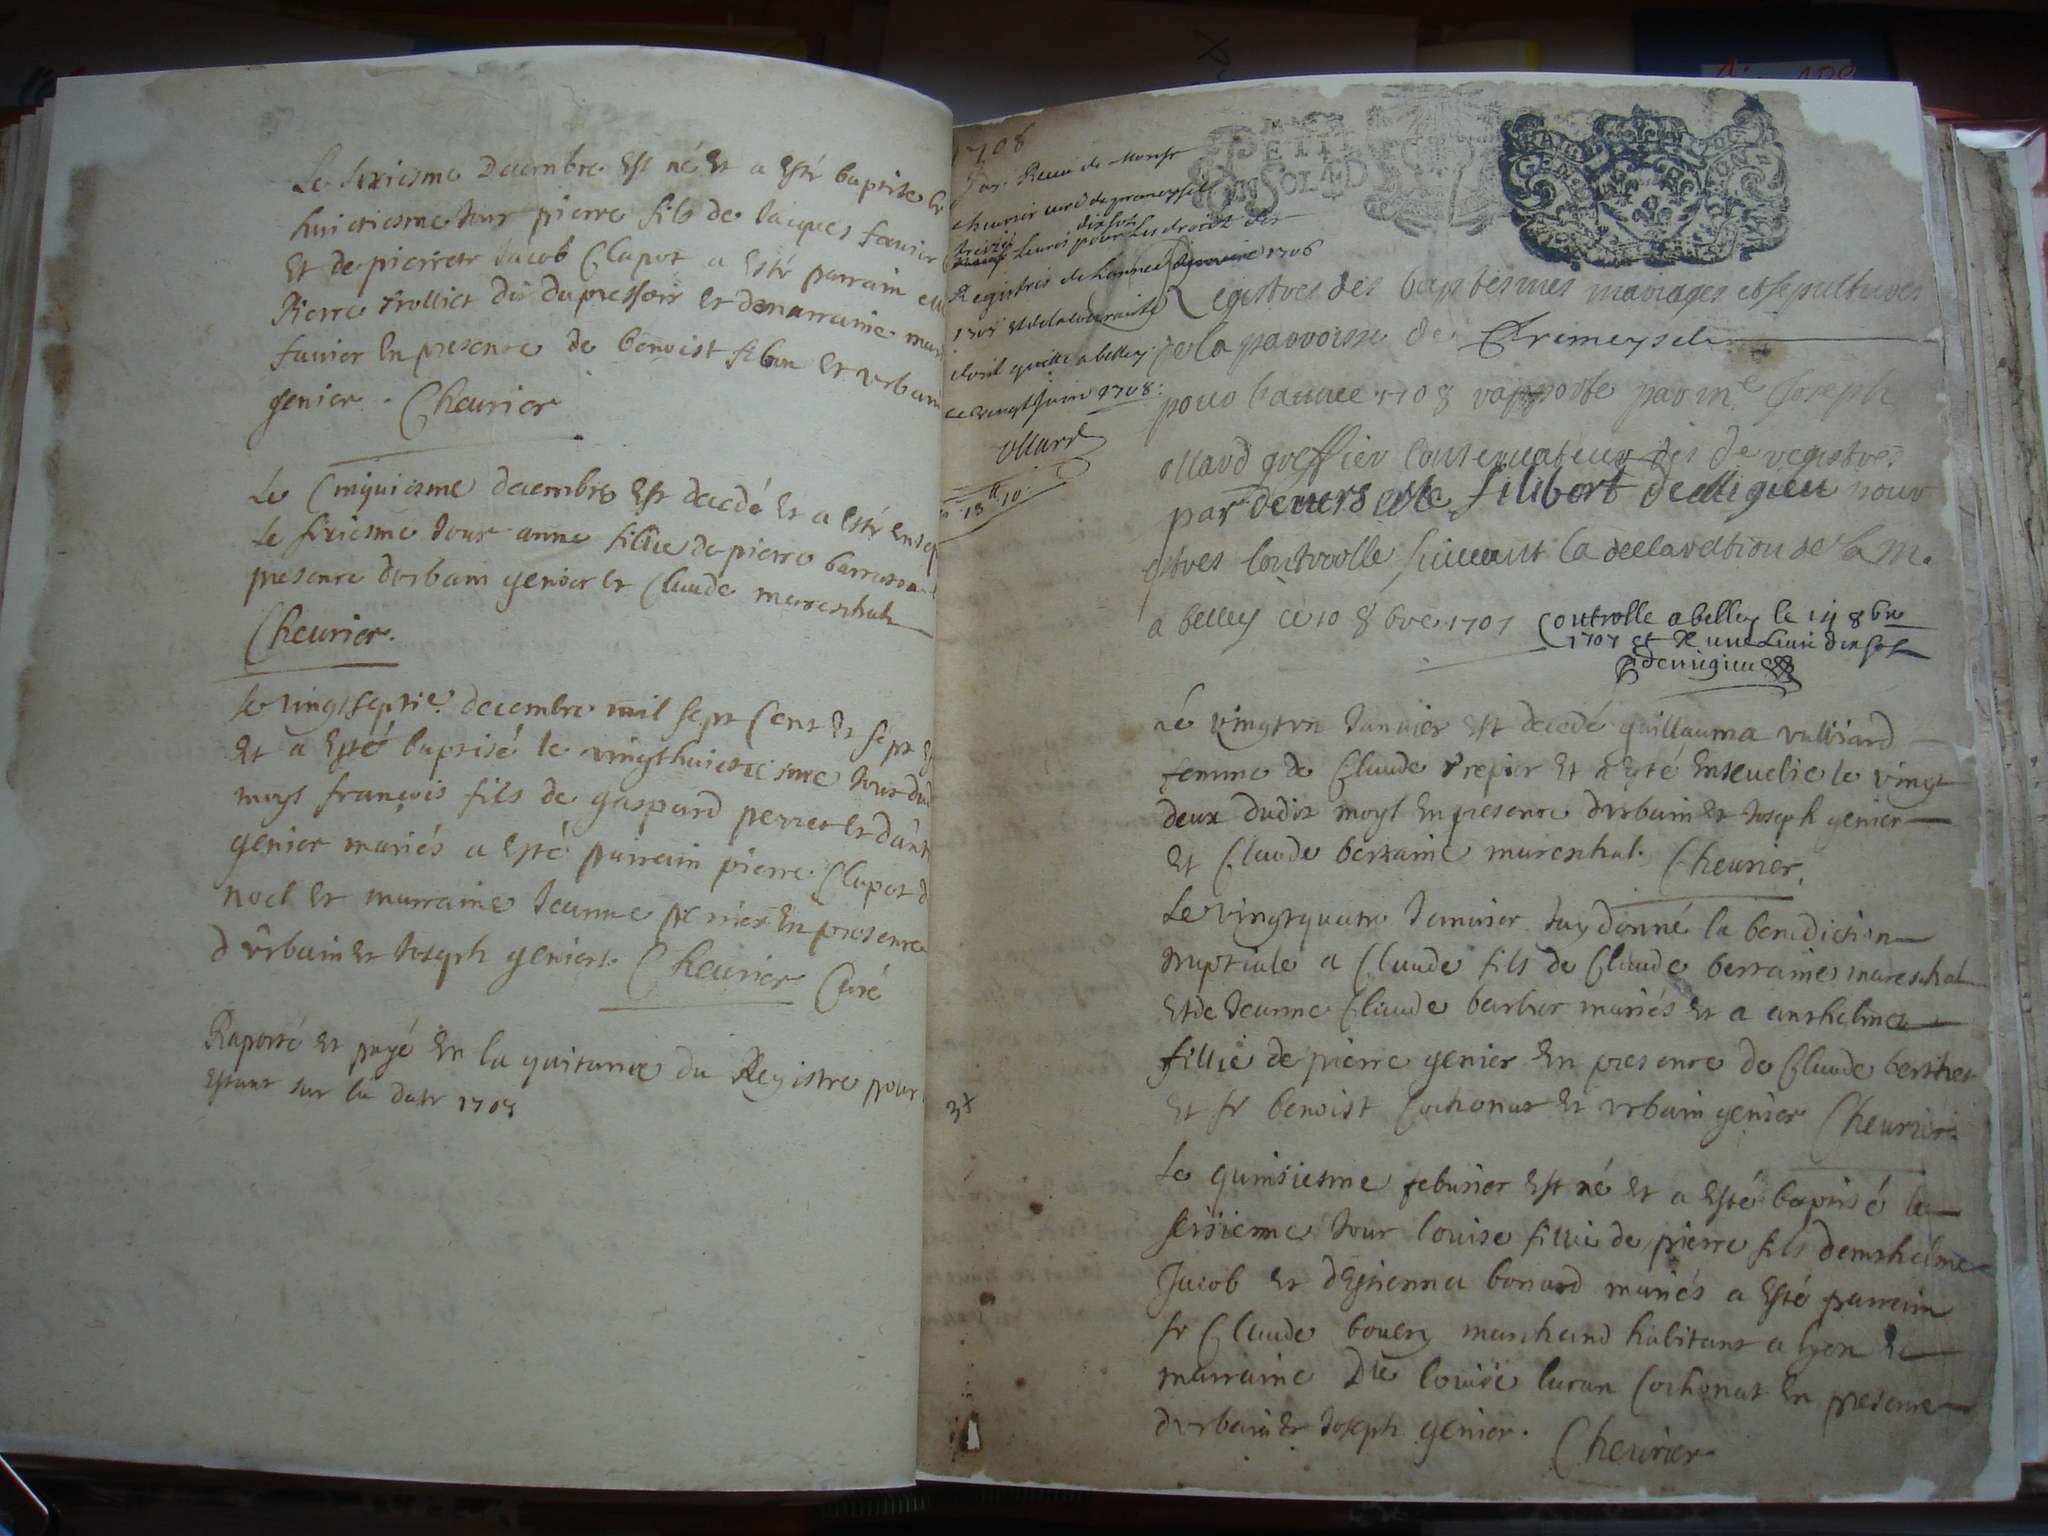 Le sixiesme decembre est né et a esté baptise le
huictiesme jour pierre fils de Jacques fauier
et de pierrete Jacob Clapot a esté parrain
Pierre Trolliet dit dupressoir et
fauier en presence de benoist et urbain
genier. Cheurier
Le Cinquiesme decembre est decedé et a esté
le sixiesme jour anne fillie de pierre
presence durbain genier et Claude mareschal
Cheurier.
le vingtseptie. decembre mil sept Cent et sept
et a esté baptisé le vingthuictiesme jour dud
moys françois fils de gaspard perret et
genier mariés a esté parrain pierre Clapot
noel et marraine Jeanne en presence
durbain et Joseph genier. Cheurier Curé
Raporté et payé en la quitance du Registre pour
estant sur la date 1708
1708
Jay Receu de
cheurier curé de
dix sols
treize livres pour les droits des
Registres de lannee 1706
1707 et de la courante
dont quitte a belley
ce vingt Juin 1708:
Ollard
13 tt 10:
PETIT
UN SOL
Registres des baptesmes mariages et sepultures
de la parroisse de Chrimeysel
pour l'annee 1708 rapporte par me Joseph
ollard greffier conservateur des de registres
par devers filibert pour
controolle suivant la declaration de sa M.
a belley ce 10 8bre 1707
Controlle a belley le 14 8bre
1707 et R une livre dix sols
demigieu
Le vingtun Januier est decedé guillauma vulliard
femme de Claude et a esté enseuelie le vingt
deux dudit moys en presence durbain et Joseph genier
et Claude berraine mareschal. Cheurier.
Le vingtquatre Januier Jay donné la benediction
nuptiale a Claude fils de Claude berraine mareschal
et de Jeanne Claude barbier mariés et a anthelmea
fillie de pierre genier en presence de Claude
et sr benoist Cochonat et urbain genier Cheurier.
Le quinsiesme feburier est né et a esté baptisé le
seisieme jour louise fillie de pierre fils danthelme
Jacob et destienna bonard mariés a esté parrain
sr Claude bouery marchand habitant a lyon et
marraine Dlle louise Cochonat en presence
durbain et Joseph genier. Cheurier